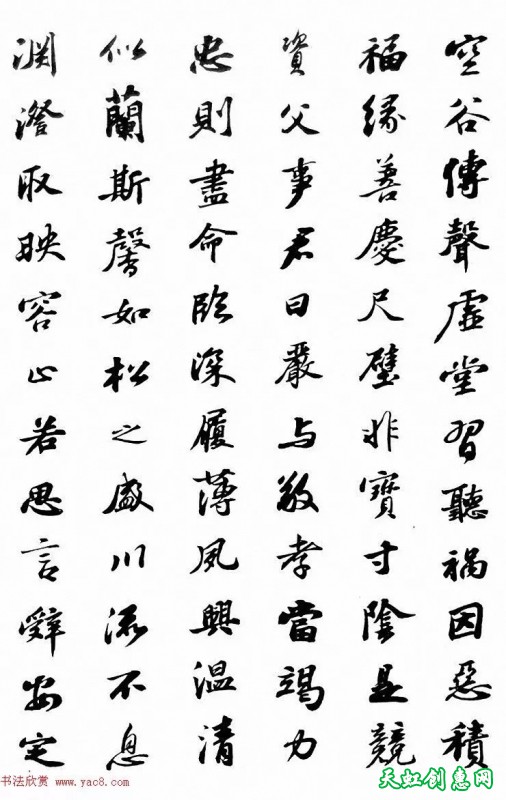 空谷傳聲虛堂習聽禍因惡積
福緣善慶尺璧非寶寸陰是競
資父事君曰嚴与敬孝當竭力
忠則盡命臨深履薄夙興温凊
似蘭斯馨如松之盛川流不息
渊澄取映容止若思言辭安定
书法欣赏 www.yac8.com
天虹创惠网